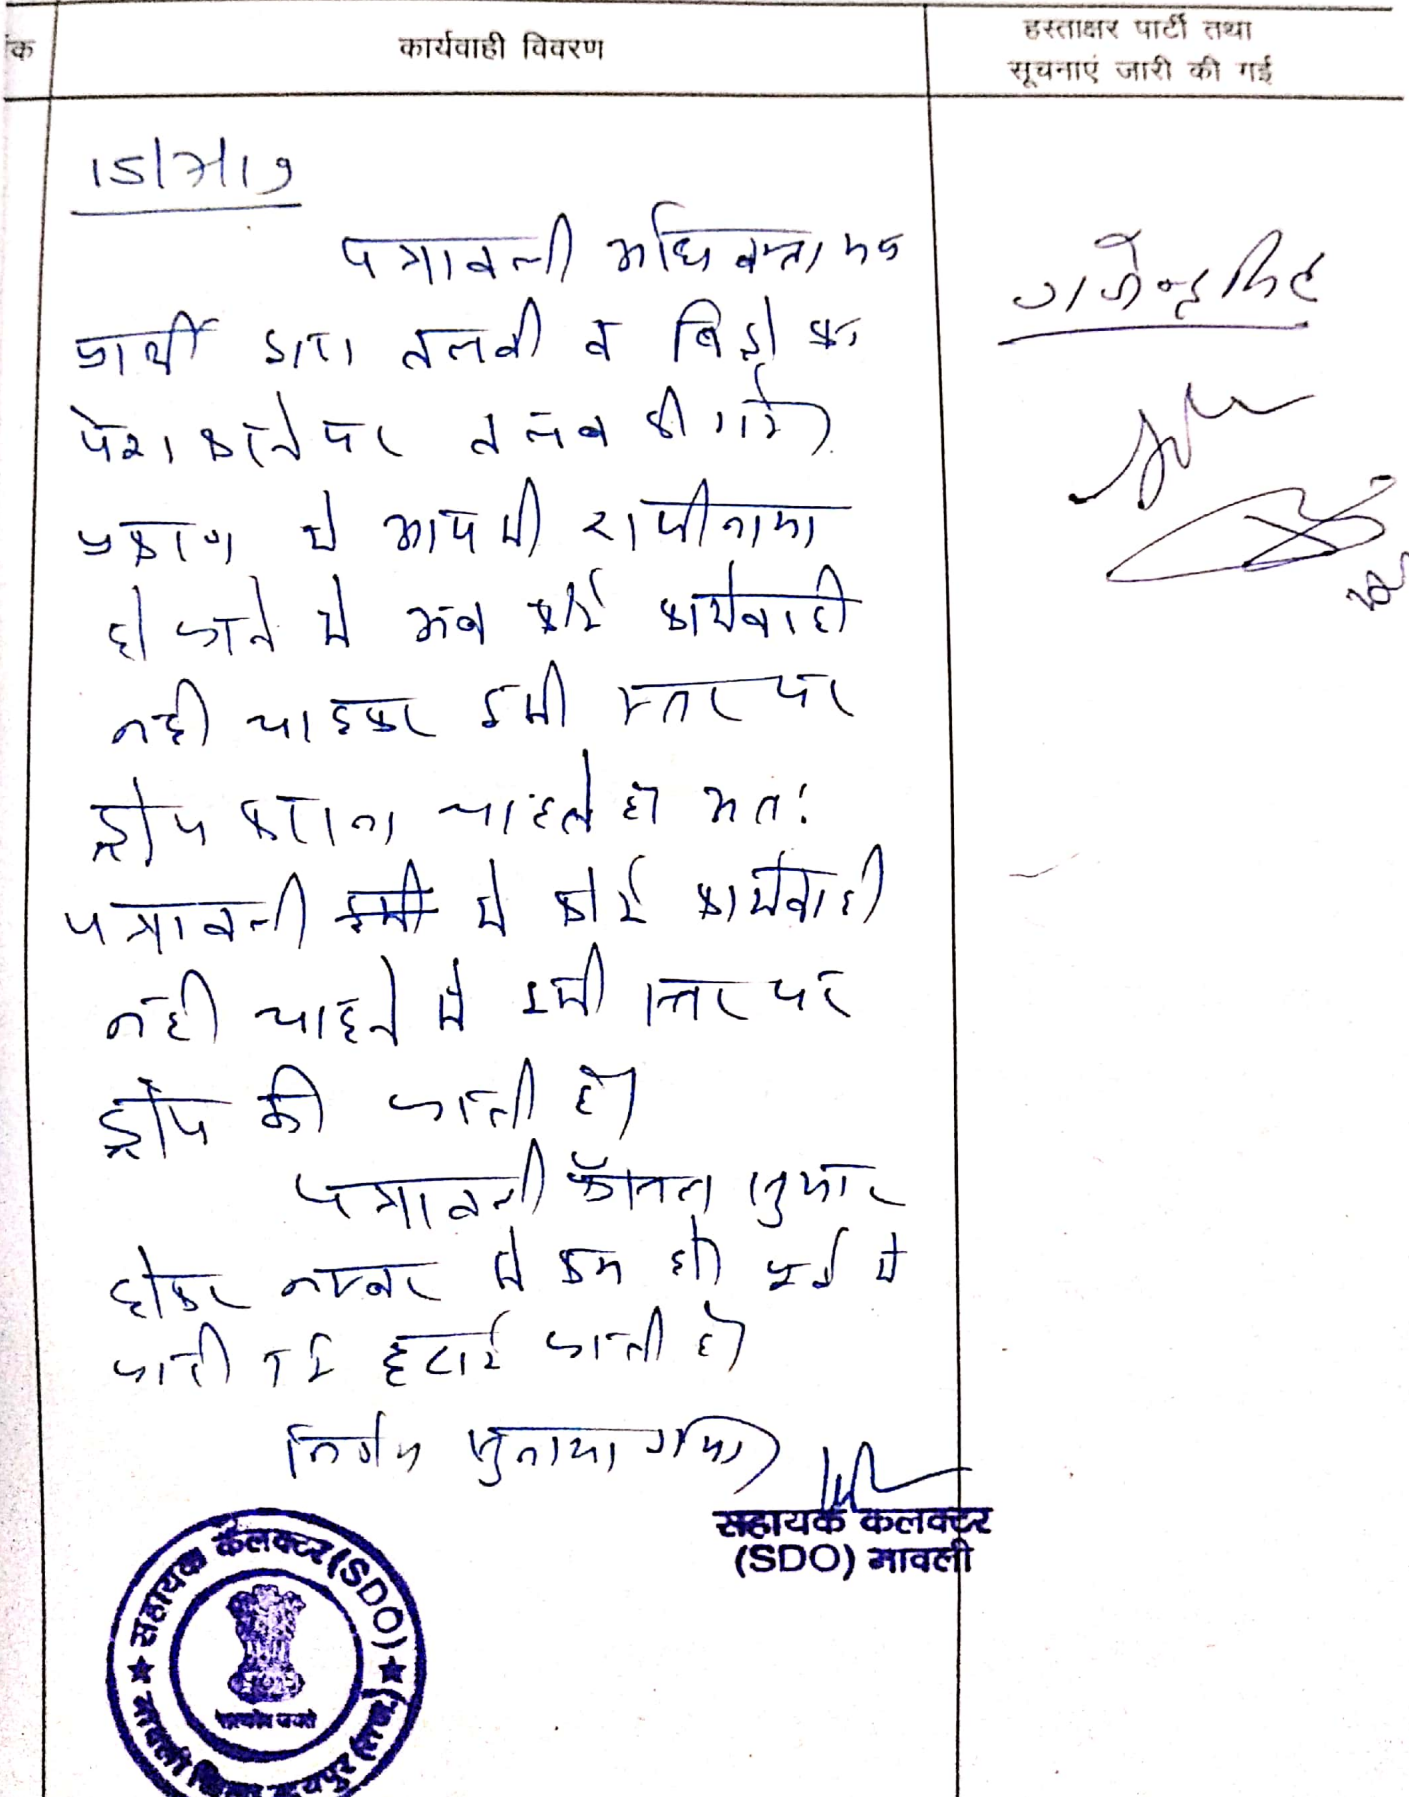 ंक
कार्यवाही विवरण
हस्ताक्षर पार्टी तथा
सूचनाएं जारी की गई
पत्रावली अधिवक्ता मय
प्रार्थी द्वारा तलबी व विड्रो का
पेश करने पर तलब की गई।
प्रकरण मे आपसी राजीनामा
हो जाने से अब कोई कार्यवाही
नही चाहकर इसी स्तर पर
ड्रोप कराना चाहते है अतः
पत्रावली इसी मे कोई कार्यवाही
नही चाहने से इसी स्तर पर
ड्रोप की जाती है।
पत्रावली फैसल शुमार
होकर नम्बर से कम हो पूर्व मे
जारी हटाई जाती है
निर्णय सुनाया गया।
गजेन्द्रसिंह
सहायक कलक्टर
(SDO) मावली
सहायक कलक्टर (SDO)
मावली जिला उदयपुर (राज.)
सत्यमेव जयते